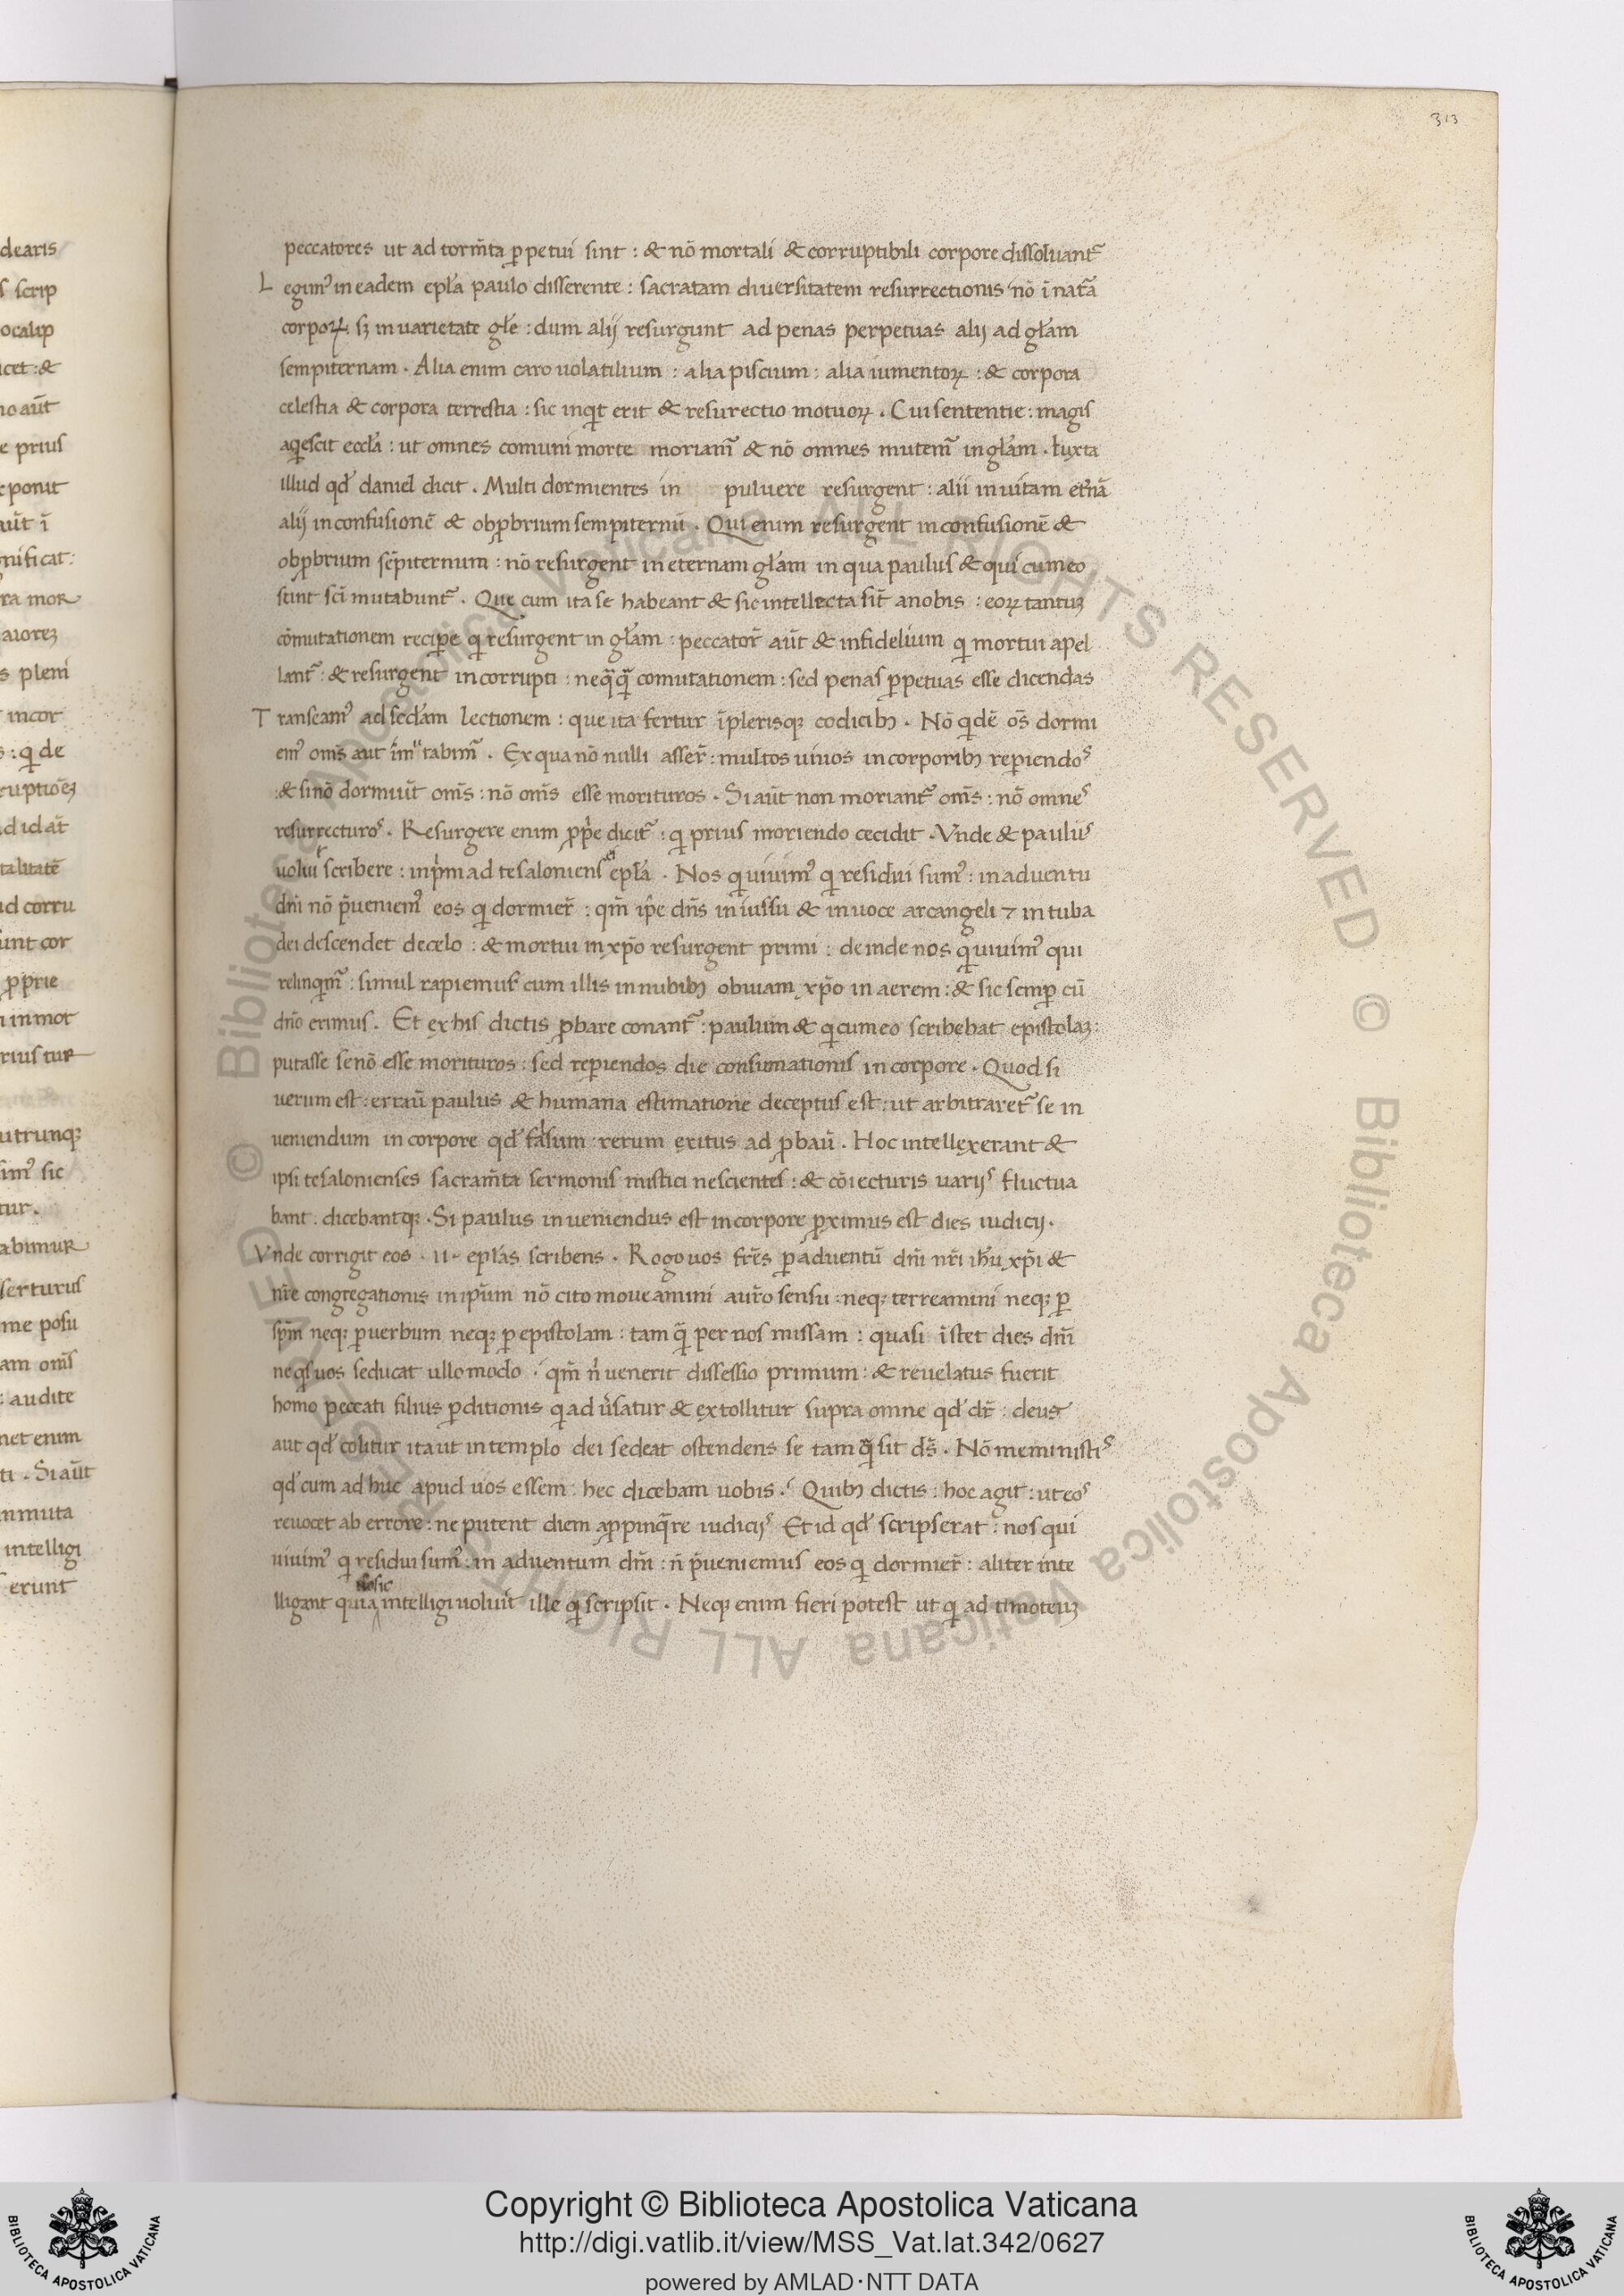 313
peccatores ut ad torm̄ta ꝑpetui sint : & nō mortali & corruptibili corpore dissoluant᷑
Legim᷒ in eadem epl̃a paulo disserente : sacratam diuersitatem resurrectionis nō ī nat᷑a
corpoꝝ : sꝫ in uarietate gl̃e : dum alij resurgunt ad penas perpetuas alij ad gl̃am
sempit̄ernam . Alia enim caro uolatilium : alia piscium : alia iumentoꝝ : & corpora
celestia & corpora terrestia : sic inqͥt erit & resurectio motuoꝝ . Cui sententie : magis
aqͥescit eccl̃a : ut omnes comuni morte moriam᷑ & nō omnes mutem᷑ in gl̃am . Iuxta
illud qd̃ daniel dicit . Multi dormientes in puluere resurgent : alii in uitam et̄nā
alij in confusionē & obꝓbrium sempiternū . Qui enim resurgent in confusionē &
obꝓbrium sēpiternum : nō resurgent in eternam gl̃am in qua paulus & qui cum eo
sunt sc̄i mutabunt᷑ . Que cum ita se habeant & sic intellecta sit̄ a nobis : eoꝝ tantuꝫ
cōmutationem recipe qͥ resurgent in gl̃am : peccator᷑ aūt & infidelium qͥ mortui apel
lant᷑ : & resurgent incorrupti : neqͣqͣ̄ comutationem : sed penas ꝑpetuas esse dicendas
Transeam᷒ ad secd̃am lectionem : que ita fertur ī plerisqꝫ codicibꝫ . Nō qͥdē om̄s dormi
em᷒ om̄s aut īmutabim᷑ . Ex qua nō nulli asser᷑ : multos uiuos in corporibꝫ repiendos
& si nō dormiūt om̄s : nō om̄s esse morituros . Si aūt non moriant᷑ om̄s : nō omnes
resurrecturos . Resurgere enim ꝓpͥe dicit᷑ : qͥ prius moriendo cecidit . Vnde & paulus
uoluit scribere : in pͥm ad tesaloniens epl̃a . Nos qͥ uiuim᷒ qͥ residui sum᷒ : in aduentu
dn̄i nō p̄ueniem᷒ eos qͥ dormier᷑ : qm̄ ip̄e dn̄s in iussu & in uoce arcangeli ⁊ in tuba
dei descendet de celo : & mortui in xp̄o resurgent primi : deinde nos qͥ uiuim᷒ qui
relinqͥm᷑ : simul rapiemur cum illis in nubibꝫ obuiam xp̄o in aerem : & sic semꝑ cū
dn̄o erimus . Et ex his dictis ꝓbare conant᷑ : paulum & qͥ cum eo scribebat epistolaꝫ :
putasse se nō esse morituros : sed repiendos die consumationis in corpore . Quod si
uerum est : errauī paulus & humana estimatione deceptus est : ut arbitraret᷑ se in
ueniendum in corpore qd̃ falsum rerum exitus ad ꝓbauī . Hoc intellexerant &
ipsi tesalonienses sacram̄ta sermonis mistici nescientes : & cōiecturis uarijs fluctua
bant . dicebantqꝫ . Si paulus inueniendus est in corpore ꝓximus est dies iudicij .
Vnde corrigit eos . ii . epl̃as scribens . Rogo uos fr̄es ꝑ aduentū dn̄i nr̄i ih̄u xp̄i &
nr̄e congregationis in ip̄um nō cito moueamini aur̄o sensu : neqꝫ terreamini neqꝫ ꝑ
sp̄m neqꝫ ꝑ uerbum neqꝫ ꝑ epistolam : tam qͣ̄ per nos missam : quasi īstet dies dn̄i
neqͥs uos seducat ullo modo : qm̄ nͥ uenerit dissessio primum : & reuelatus fuerit
homo peccati filius ꝑditionis qͥ aduͥsatur & extollitur supra omne qd̃ dr̄ : deus
aut qd̃ colitur ita ut in templo dei sedeat ostendens se tam qͣ̄ sit ds̄ . Nō meministis
qd̃ cum ad huc apud uos essem : hec dicebam uobis . Quibꝫ dictis : hoc agit : ut eos
reuocet ab errore : ne putent diem appinqͣre iudicijs Et id qd̃ scripserat : nos qui
uiuim᷒ qͥ residui sum᷒ : in aduentum dn̄i : n̄ p̄ueniemus eos qͥ dormier᷑ : aliter inte
lligant quia nō sic intelligi uoluit̄ ille qͥ scripsit . Neqꝫ enim fieri potest ut qͥ ad timoteuꝫ
Copyright © Biblioteca Apostolica Vaticana
http://digi.vatlib.it/view/MSS_Vat.lat.342/0627
powered by AMLAD·NTT DATA